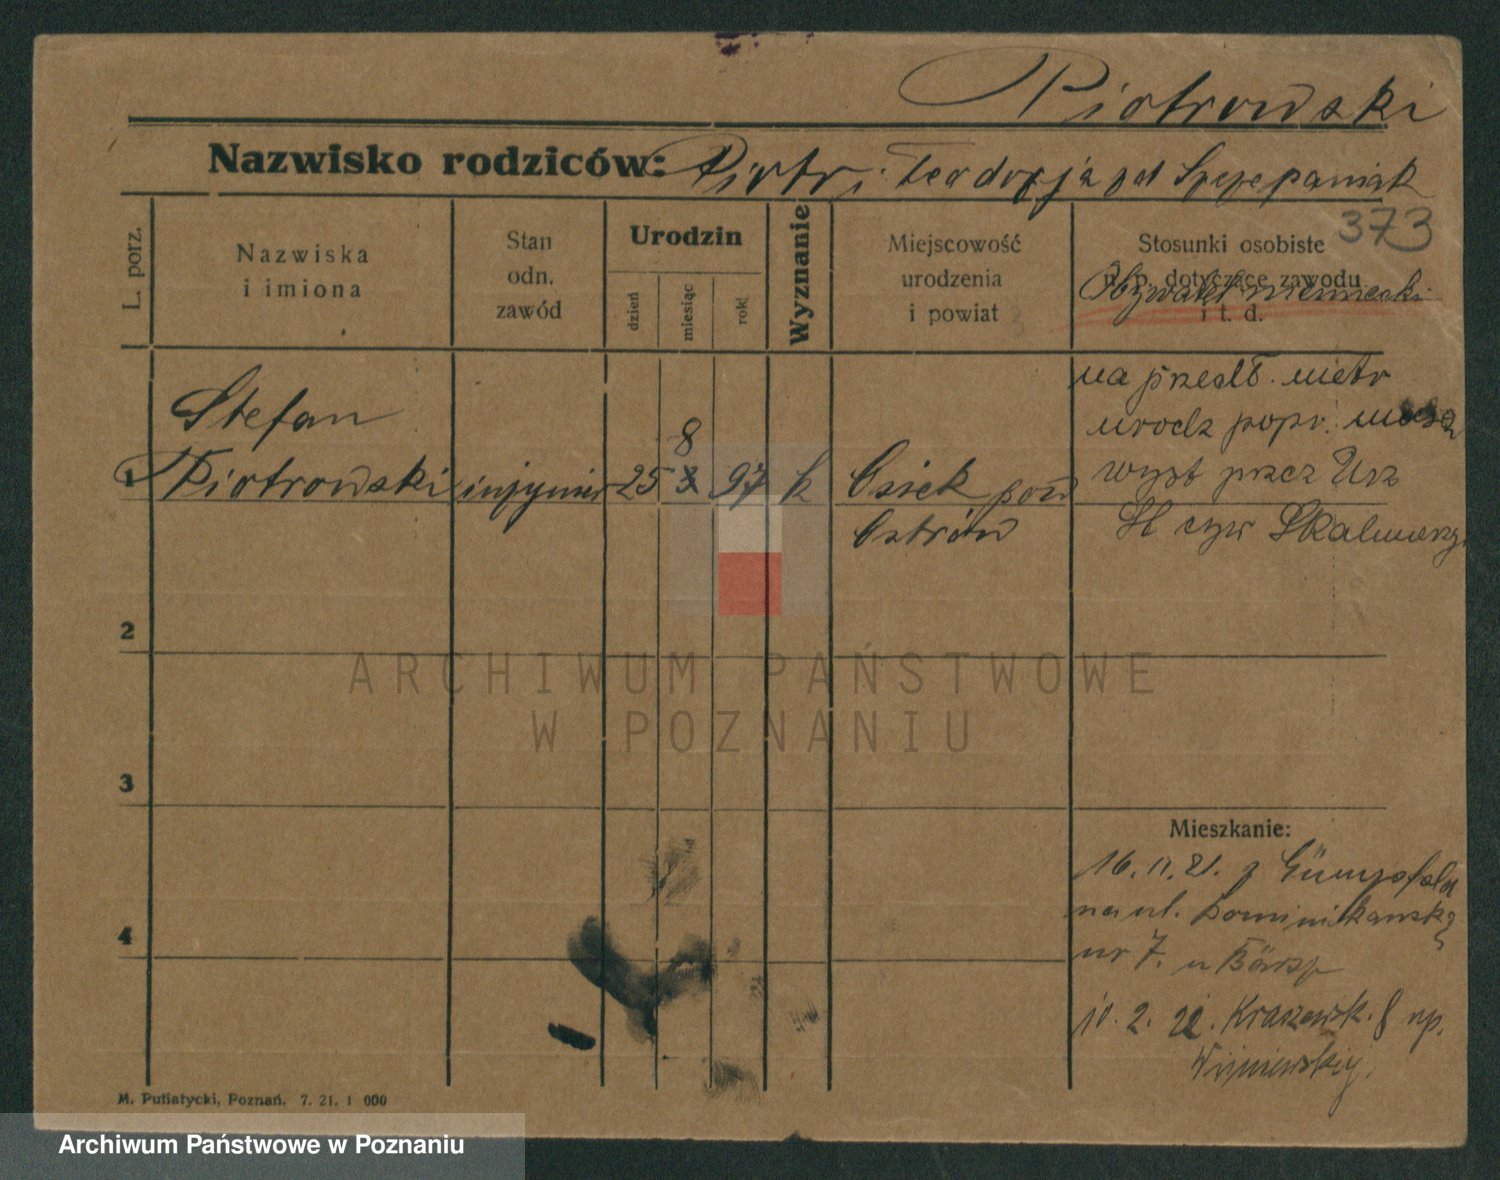 Piotrowski
Nazwisko rodziców: Piotr i Teodozja z d Szczepaniak
373
L. porz.
Nazwiska
i imiona
Stan
odn.
zawód
Urodzin
dzień
miesiąc
rok
Wyznanie
Miejscowość
urodzenia
i powiat
Stosunki osobiste
n. p. dotyczące zawodu
i t. d.
Obywatel niemiecki
na przedł. metr
urodz popr.
wyst przez Urz
St cyw Skalmierzy
1
Stefan
Piotrowski
inżynier
25
8
3
97
k
Osiek pow
Ostrów
2
3
4
Mieszkanie:
16. 11. 21. z
na ul. Dominikańską
nr 7. u
10. 2. 22. Kraszewsk. 8 np.
Wiśniewskiej.
M. Putiatycki, Poznań. 7. 21. 1 000
ARCHIWUM PAŃSTWOWE
W POZNANIU
Archiwum Państwowe w Poznaniu